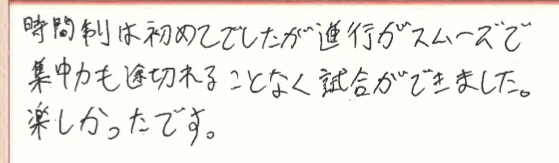 時間制は初めてでしたが進行がスムーズで
集中力も途切れることなく試合ができました。
楽しかったです。